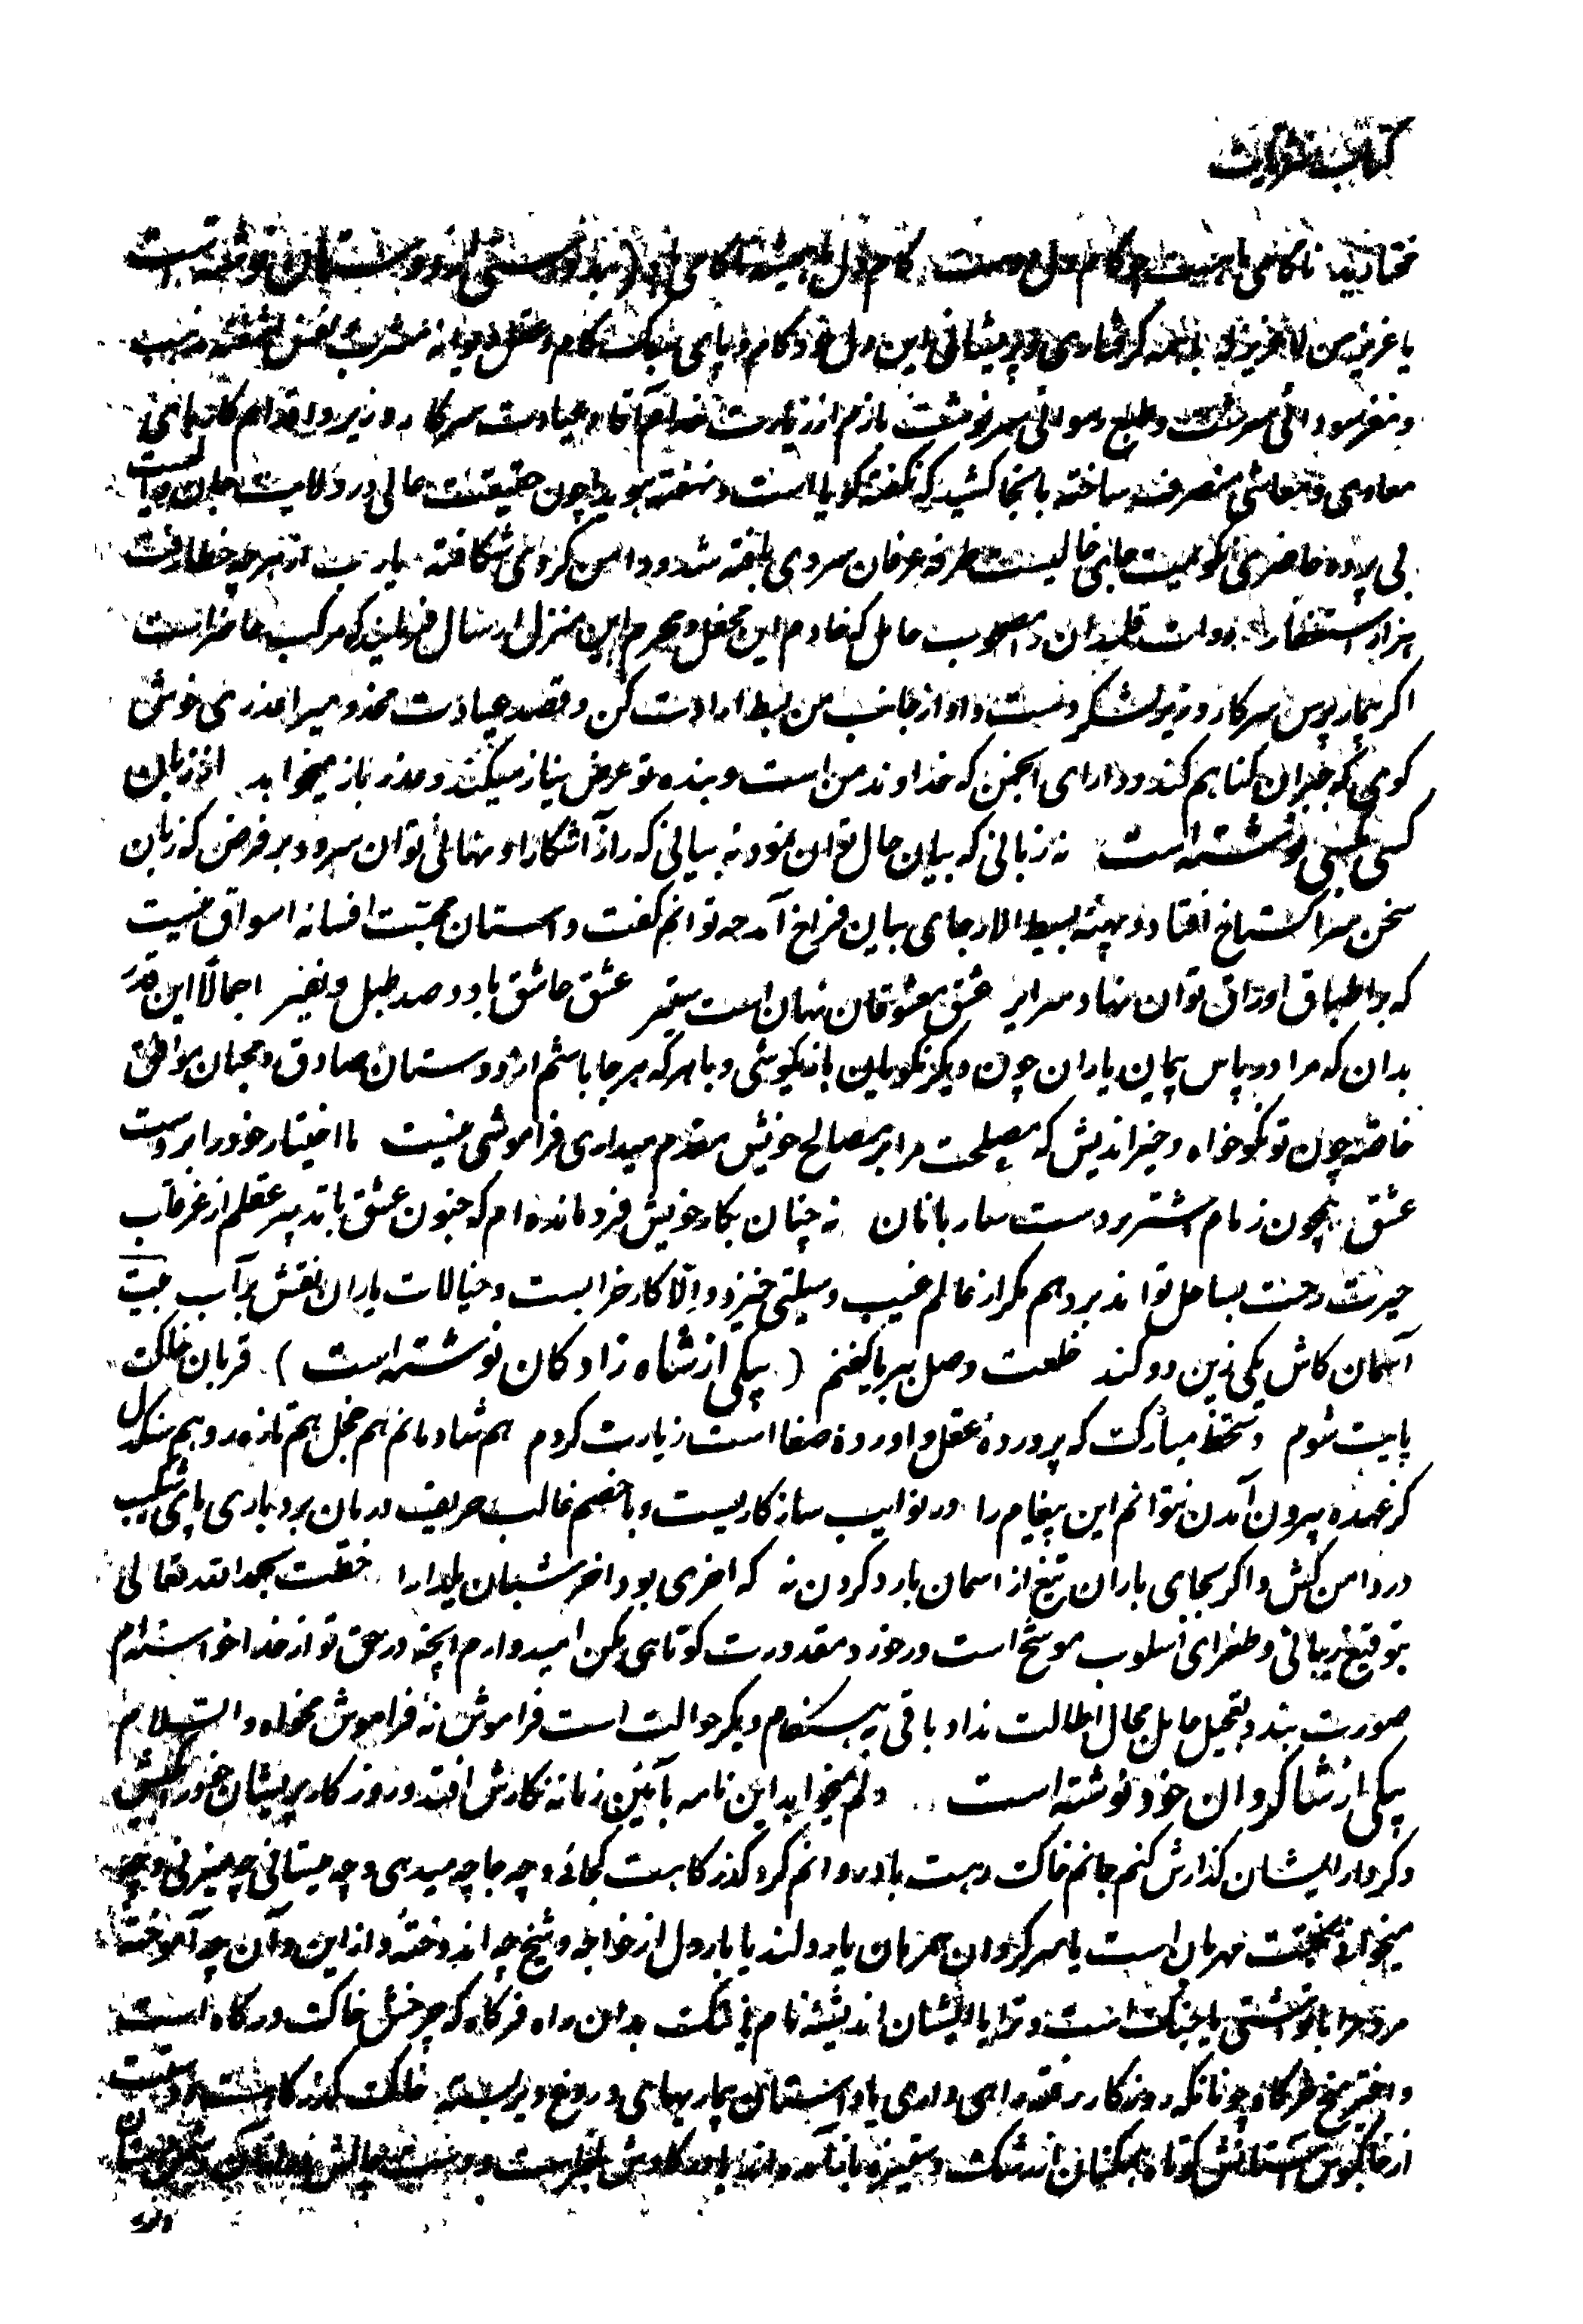 کتاب منشآت
مختارید ناکامی ما چیست چو کام دل اوست کام دل ما همیشه ناکامی باد
یا عزیز من لا عزیز له با همه گرفتاری و پریشانی این دل خودکام و پای سبک گام و عقل دیوانه مشرب نفس
و مغز سودائی سرشت و طبع رسوائی سرنوشت بازم از زیارت خدام آقا و عیادت سرکار وزیر و اقدام کارهای
معادی و معاشی منصرف ساخته بانجا کشید که نگفته گویا است و نهفته هویدا چون حقیقت حالی در ولایت جان
بی پرده حاضری گوئیت جای خالیست طرفه عرفان سروی بافته شد و دامن کردی شکافته یا رب از هرچه خطا رفت
هزار استغفار دوات قلمدان مصحوب حامل که خادم این محفل و محرم این منزل ارسال فرمایند که مرکب حاضر است
اگر بیمار پرس سرکار وزیر لشکر دست داد از جانب من بسط ارادت کن و قصد عیادت مخدومی را عذری خوش
گوی که جبران گناهم کند و دارای انجمن که خداوند من است و بنده تو عرض نیاز میکند و عذر باز میخواهد از زبان
کسی بکسی نوشته است نه زبانی که بیان حال توان نمود نه بیانی که راز آشکارا و نهانی توان سرود بر فرض که زبان
سخن سرا گستاخ افتاد و پهنه بسیط الارجای بیان فراخ آمد چه توانم گفت داستان محبت افسانه اسواق نیست
که بر اطباق اوراق توان نهاد سرایر عشق معشوقان نهان است و ستیر عشق عاشق با دو صد طبل و نفیر اجمالا این قدر
بدان که مرا در پاس پیمان یاران چون دیگر نکویان بازیگوشی و با هر که هر جا باشم از دوستان صادق و محبان موافق
خاصه چون تو نکوخواه و خیراندیش که مصلحت مرا بر مصالح خویش مقدم میداری فراموشی نیست ما اختیار خود را بر دست
عشق همچون زمام اشتر بر دست ساربانان نه چنان بکار خویش فرو مانده ام که جنون عشق یا تدبیر عقلم از غرقاب
حیرت رخت بساحل تواند برد هم مگر از عالم غیب وسیلتی خیزد و الّا کار خرابست و خیالات یاران نقش بر آب بیت
آسمان کاش یکی زین دو کند خلعت وصل ببر یا کفنم ( بیکی از شاه زادگان نوشته است ) قربان خاک
پایت شوم دستخط مبارک که پرورده عقل و آورده صفا است زیارت کردم هم شادمانم هم خجل هم تازه رو هم تنگدل
کز عهده بیرون آمدن نتوانم این پیغام را در نوایب سازگاریست و با خصم غالب حریف درمان بردباری پای شکیب
در دامن کش و اگر بجای باران تیغ از آسمان بارد گردن نه که آخری بود آخر شبان یلدا را خطت بحمد الله تعالی
بتوقیع زیبائی و طغرای اسلوب موشح است در خورد مقدورت کوتاهی مکن امیدوارم آنچه در حق تو از خدا خواسته ام
صورت بندد تعجیل حامل مجال اطالت نداد باقی به هنگام دیگر حوالت است فراموش نه فراموش مخواه و السلام
بیکی از شاگردان خود نوشته است دلم میخواهد این نامه بآئین زمانه نگارش افتد و روزگار پریشان خود را پیش
و کردار ایشان گذارش کنم جانم خاک رهت باد و روانم گرد گذرگاهت کجائی و چه جا چه میدهی و چه میستانی چه میزنی و چه
میخوانی بختت مهربان است یا سرگردان همرهان یار دلند یا بار دل از خواجه و شیخ چه اندوخته و از این و آن چه آموخته
مردم را با تو آشتی یا جنگ است و ترا با ایشان اندیشه نام یا ننگ بدان راه فرگاه که چرخش خاک درگاه است
و اختر میخ خرگاه چونانکه روزگار رفته راهی داری یا داستان بیمار بهای دروغ دیر بسته خاک گذرگاهت
از خاکبوس آستانش کوتاه